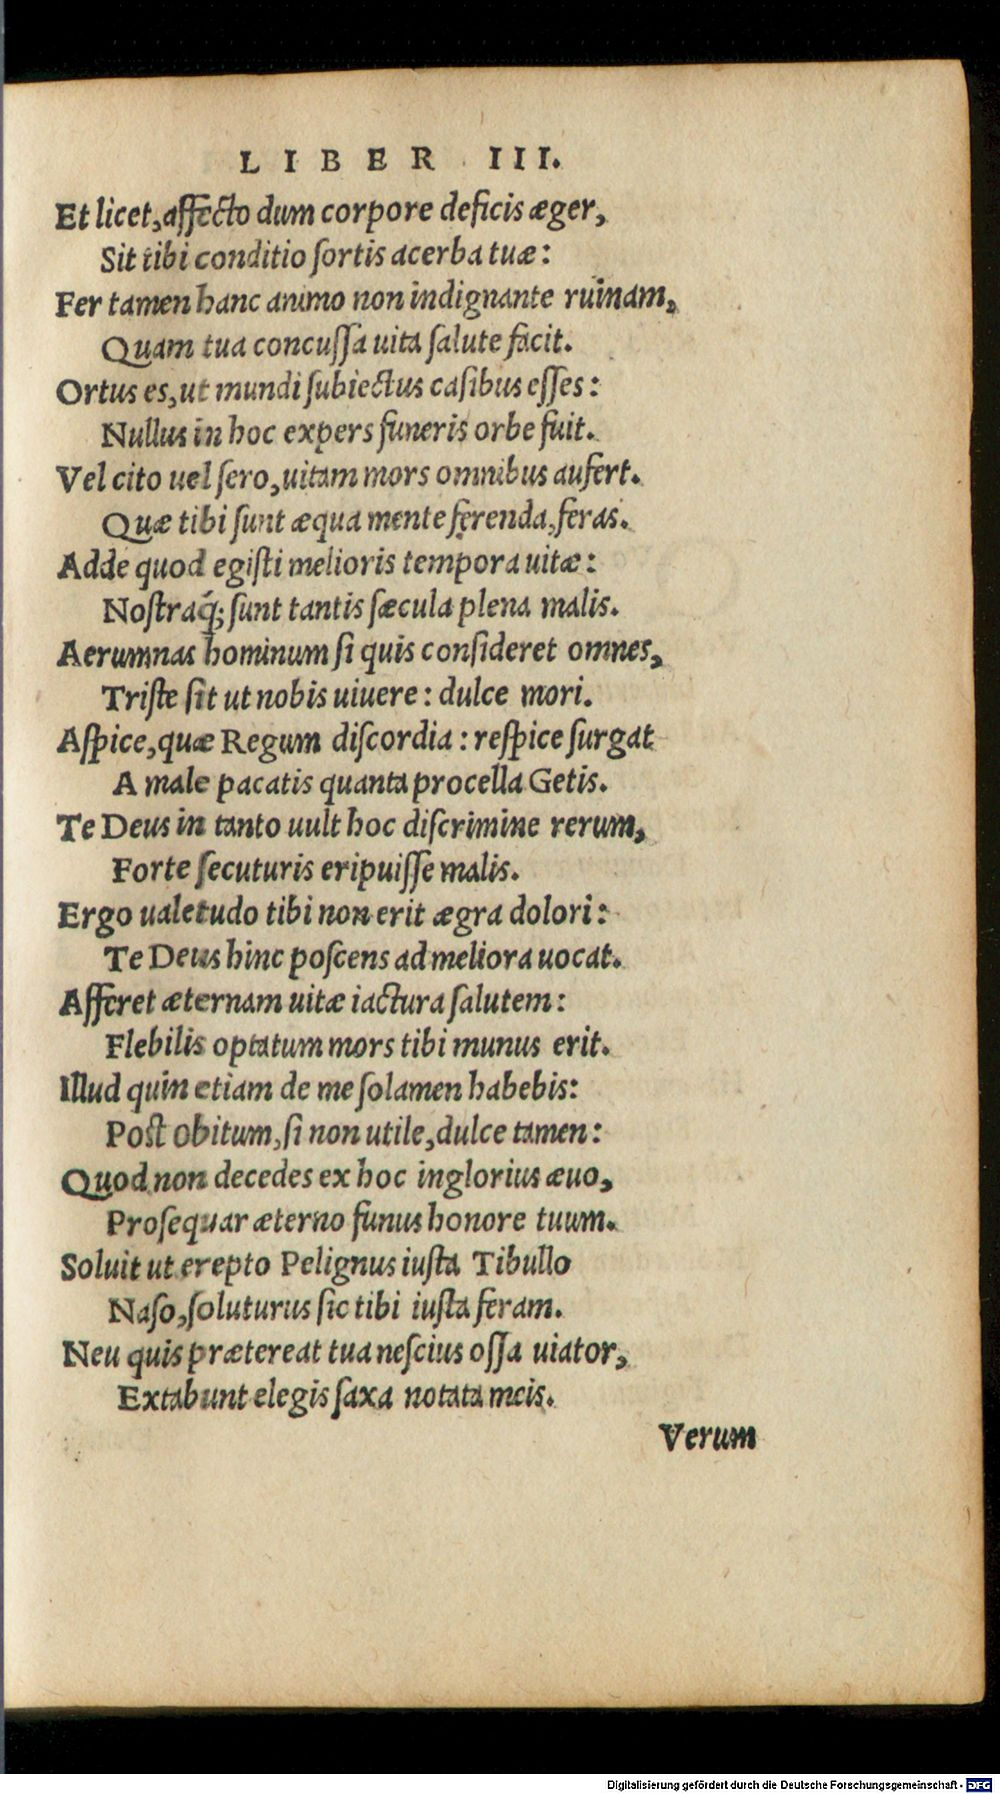 LIBER III.
Et licet, affecto dum corpore deficis æger,
Sit tibi conditio ſortis acerba tuæ:
Fer tamen hanc animo non indignante ruinam,
Quam tua concuſſa uita ſalute facit.
Ortus es, ut mundi ſubiectus caſibus eſſes:
Nullus in hoc expers funeris orbe fuit.
Vel cito uel ſero, uitam mors omnibus aufert.
Quæ tibi ſunt æqua mente ferenda, feras.
Adde quod egiſti melioris tempora uitæ:
Noſtraq́; ſunt tantis ſæcula plena malis.
Aerumnas hominum ſi quis conſideret omnes,
Triſte ſit ut nobis uiuere: dulce mori.
Aſpice, quæ Regum diſcordia: reſpice ſurgat
A male pacatis quanta procella Getis.
Te Deus in tanto uult hoc diſcrimine rerum,
Forte ſecuturis eripuiſſe malis.
Ergo ualetudo tibi non erit ægra dolori:
Te Deus hinc poſcens ad meliora uocat.
Afferet æternam uitæ iactura ſalutem:
Flebilis optatum mors tibi munus erit.
Illud quin etiam de me ſolamen habebis:
Poſt obitum, ſi non utile, dulce tamen:
Quod non decedes ex hoc inglorius æuo,
Proſequar æterno funus honore tuum.
Soluit ut erepto Pelignus iuſta Tibullo
Naſo, ſoluturus ſic tibi iuſta feram.
Neu quis prætereat tua neſcius oſſa uiator,
Extabunt elegis ſaxa notata meis.
Verum
Digitalisierung gefördert durch die Deutsche Forschungsgemeinschaft - DFG